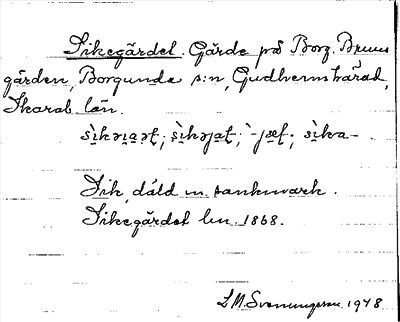 Sikegärdet. Gärde på Borg. Bruns
gården, Borgunda s:n, Gudhems härad,
Skarab. län.
sìkəɟaət; sìkəjat; `-jæt; sìka-
Sik, däld m. sankmark.
Sikegärdet lm. 1868.
L M Svenungsson 1948